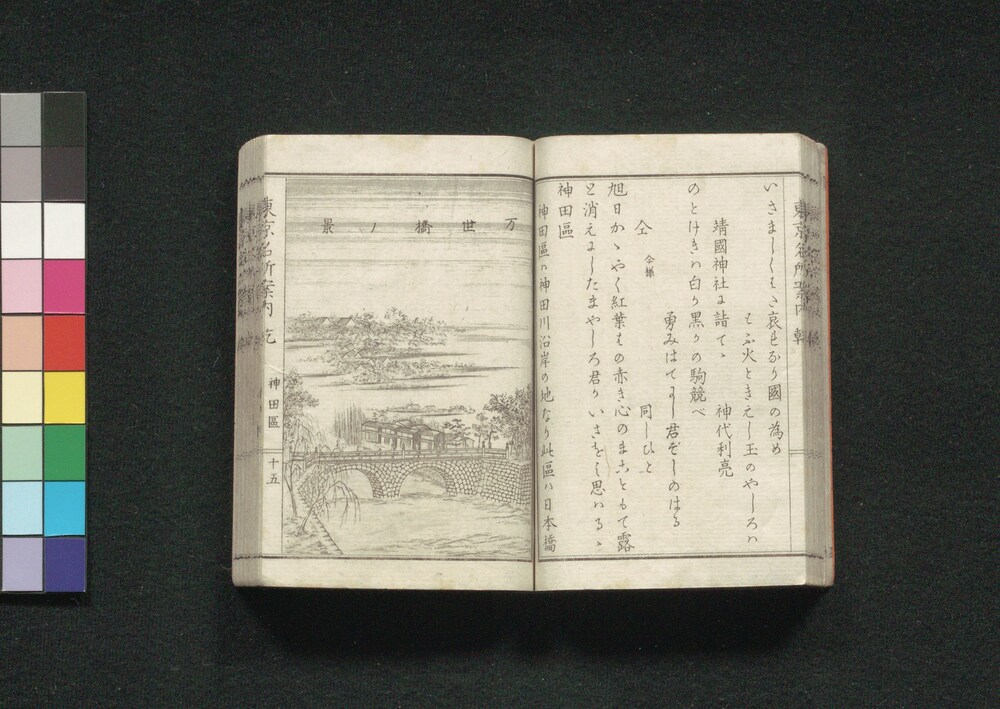 いさましくもさ哀れなり國の為め
もふ火ときえし玉のやしろハ
靖國神社に詣て、
神代利亮
のとけきハ白り黒りの駒競べ
勇みはてよし君ぞしのはる
仝
仝櫞
同しひと
旭日かゝやく紅葉はの赤き心のまこともて露
と消えにしたまやしろ君りいさをし思ハるゝ
神田區
神田區ハ神田川沿岸の地なり此區ハ日本橋
万世橋ノ景
東京名所案内 乾
神田區
十五